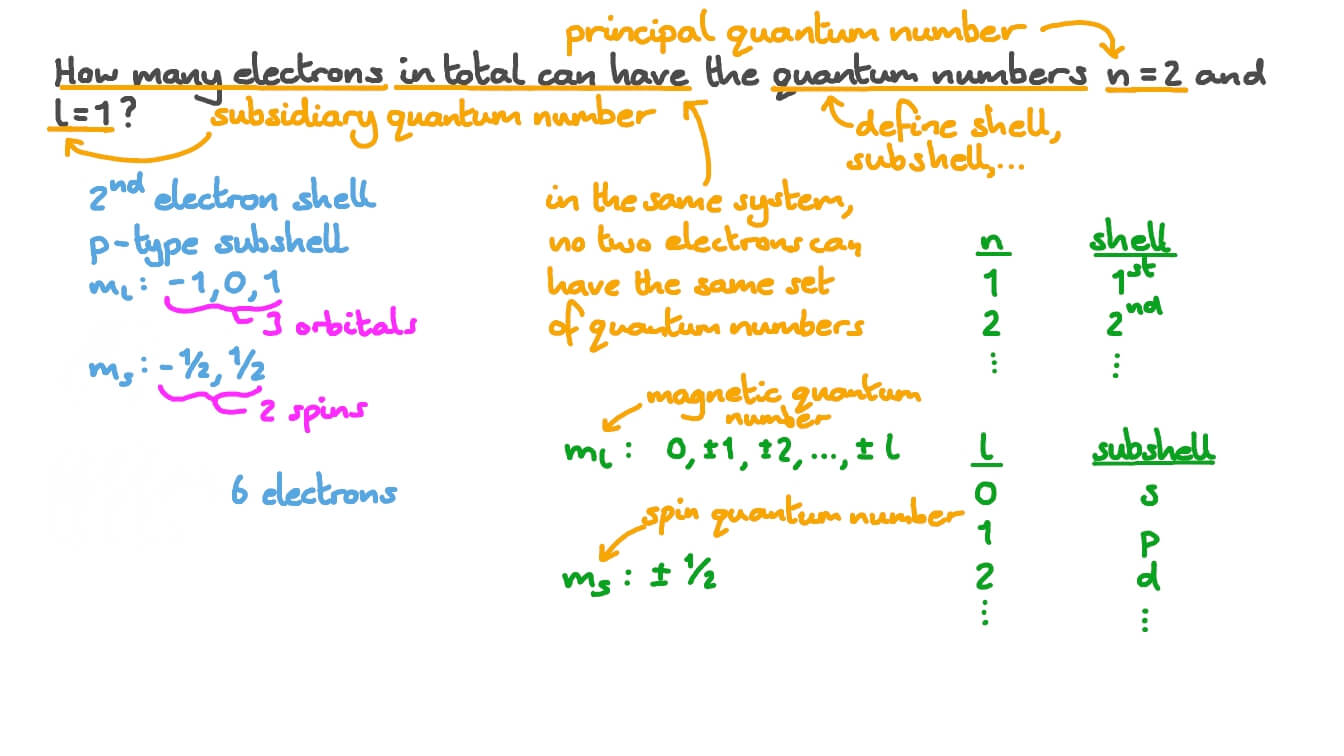 principal quantum number
How many electrons in total can have the quantum numbers n = 2 and
l = 1 ?
subsidiary quantum number
define shell,
subshell,...
2nd electron shell
p-type subshell
mL : -1, 0, 1
3 orbitals
ms : -½, ½
2 spins
6 electrons
in the same system,
no two electrons can
have the same set
of quantum numbers
magnetic quantum
number
mL : 0, ±1, ±2, ..., ± l
spin quantum number
ms : ± ½
n shell
1 1st
2 2nd
⋮ ⋮
l subshell
0 s
1 p
2 d
⋮ ⋮